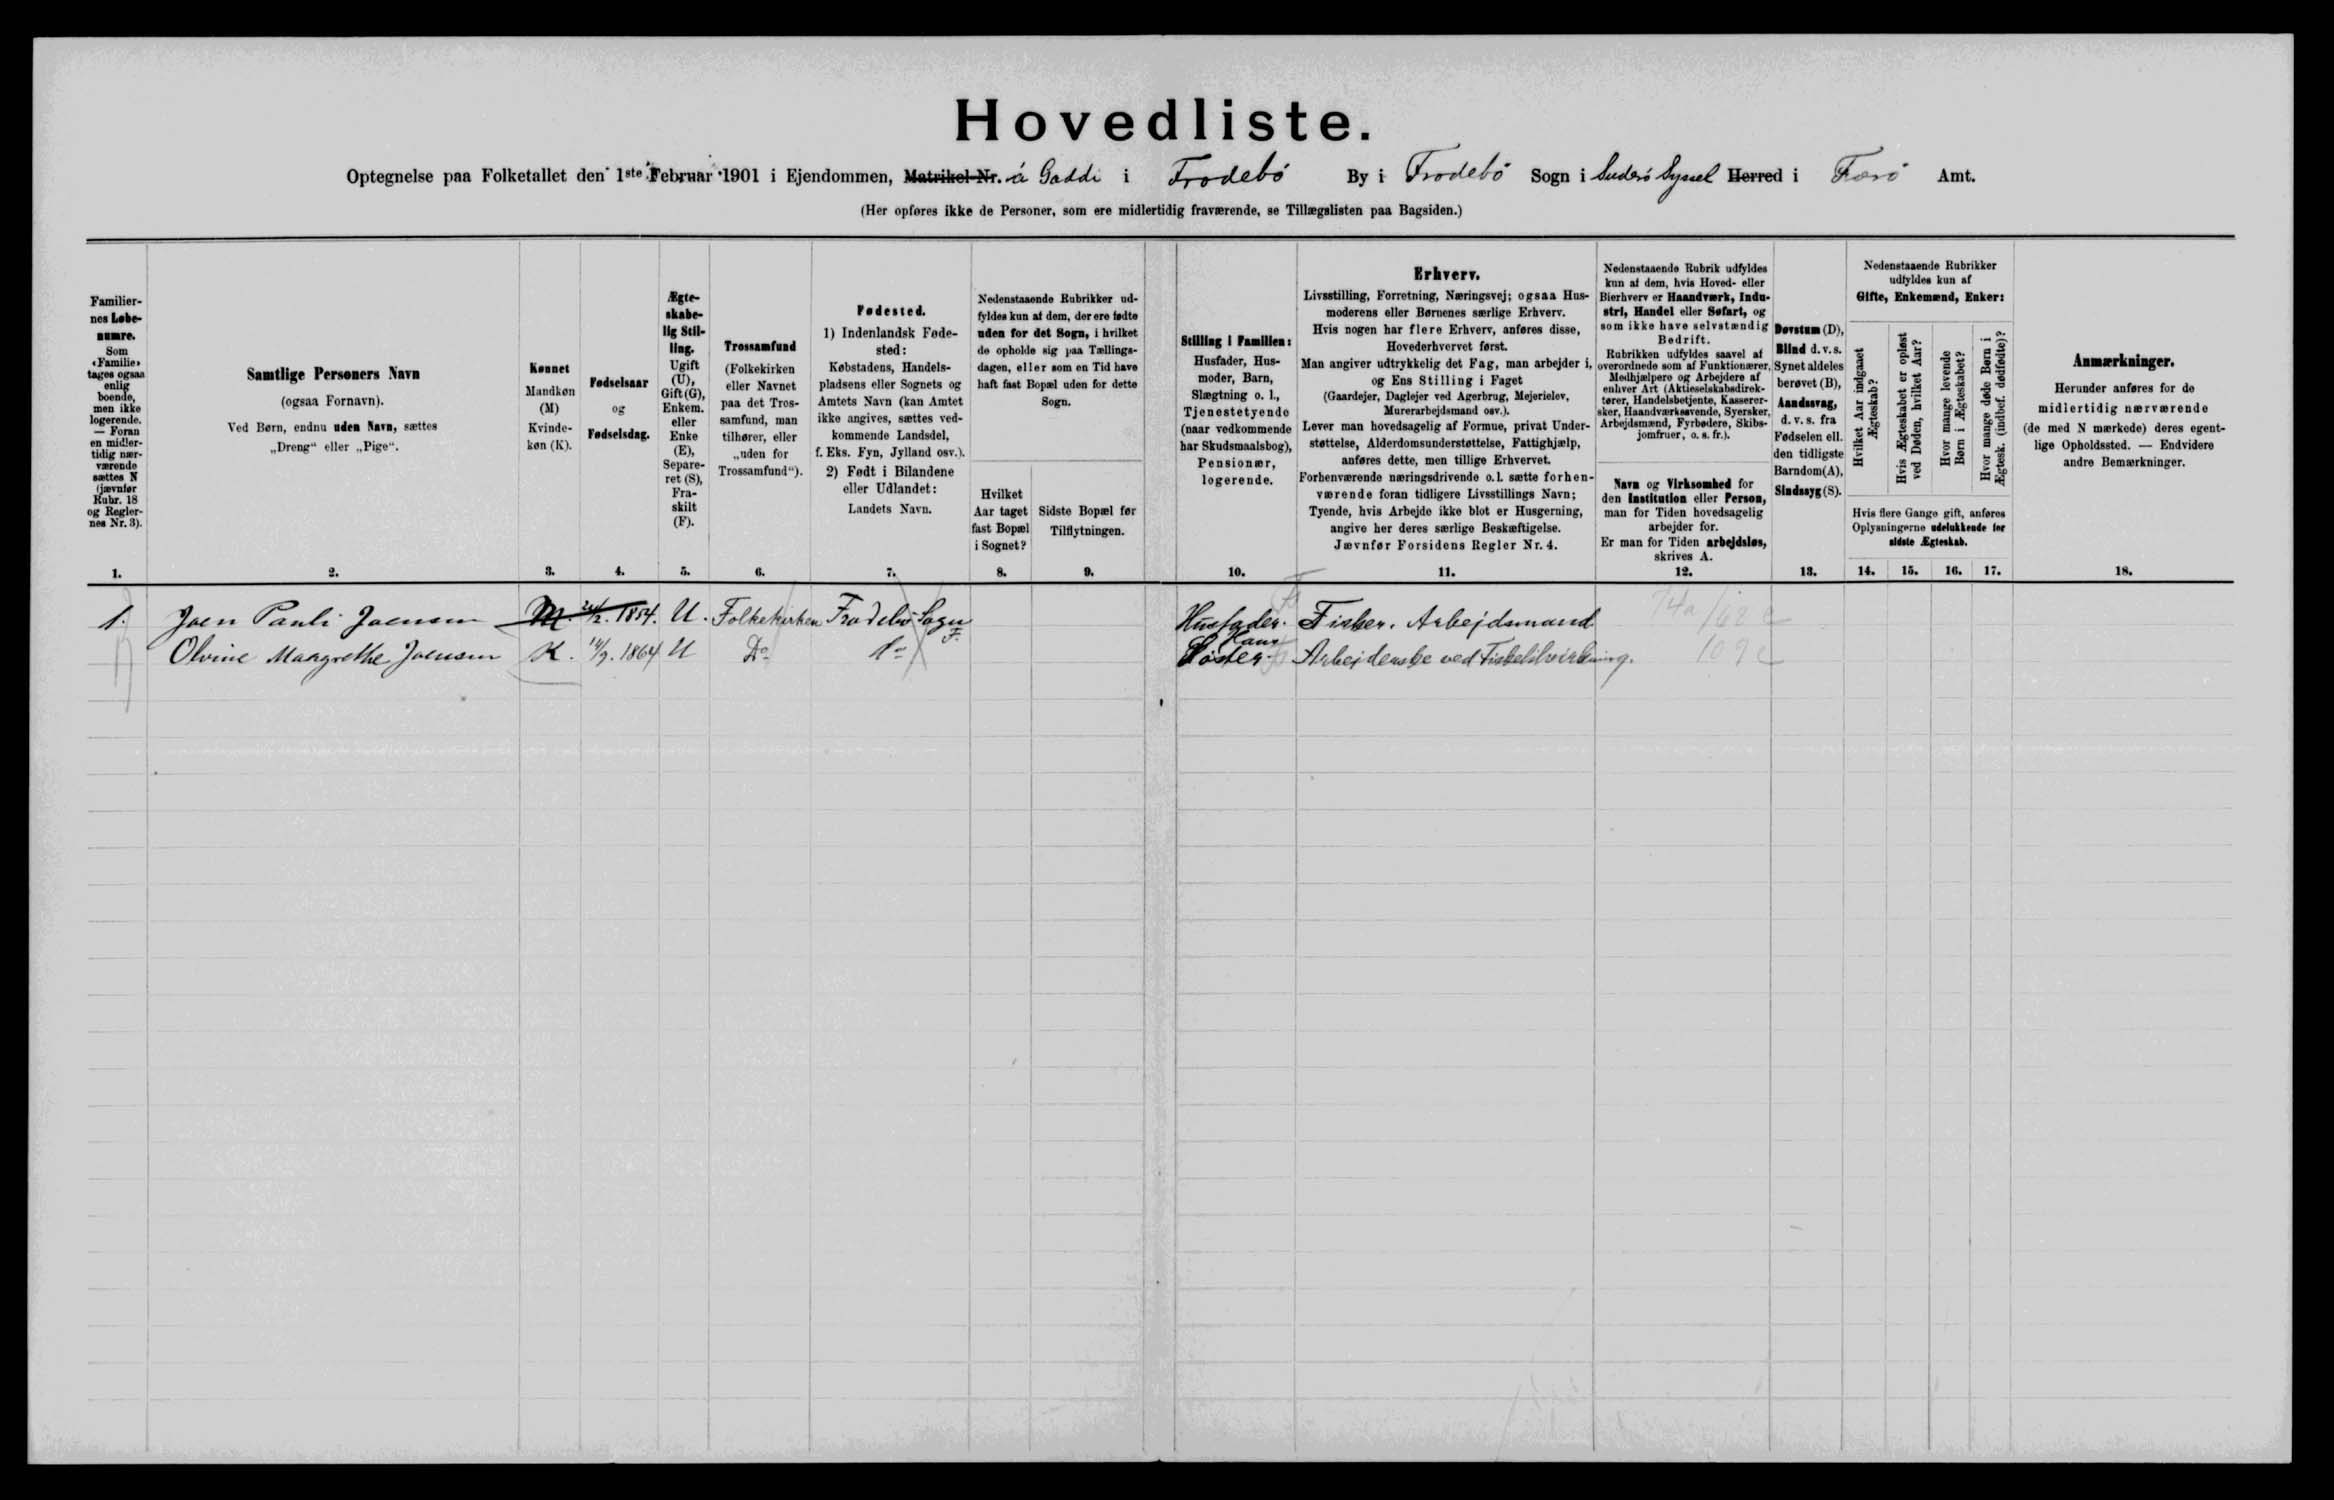 Hovedliste.
Optegnelse paa Folketallet den 1ste Februar 1901 i Ejendommen, Matrikel-Nr. á Gaddi i Frodebö By i Frodebö Sogn i Suderö Syssel Herred i Færö Amt.
(Her opføres ikke de Personer, som ere midlertidig fraværende, se Tillægslisten paa Bagsiden.)
Familier-
nes Løbe-
numre.
Som
«Familie»
tages ogsaa
enlig
boende,
men ikke
logerende.
— Foran
en midler-
tidig nær-
værende
sættes N
(jævnfør
Rubr. 18
og Regler-
nes Nr. 3).
Samtlige Personers Navn
(ogsaa Fornavn).
Ved Børn, endnu uden Navn, sættes
„Dreng“ eller „Pige“.
Kønnet
Mandkøn
(M)
Kvinde-
køn (K).
Fødselsaar
og
Fødselsdag.
Ægte-
skabe-
lig Stil-
ling.
Ugift
(U),
Gift (G),
Enkem.
eller
Enke
(E),
Separe-
ret (S),
Fra-
skilt
(F).
Trossamfund
(Folkekirken
eller Navnet
paa det Tros-
samfund, man
tilhører, eller
„uden for
Trossamfund“).
Fødested.
1) Indenlandsk Føde-
sted:
Købstadens, Handels-
pladsens eller Sognets og
Amtets Navn (kan Amtet
ikke angives, sættes ved-
kommende Landsdel,
f. Eks. Fyn, Jylland osv.).
2) Født i Bilandene
eller Udlandet:
Landets Navn.
Nedenstaaende Rubrikker ud-
fyldes kun af dem, der ere fødte
uden for det Sogn, i hvilket
de opholde sig paa Tællings-
dagen, eller som en Tid have
haft fast Bopæl uden for dette
Sogn.
Hvilket
Aar taget
fast Bopæl
i Sognet?
Sidste Bopæl før
Tilflytningen.
Stilling i Familien:
Husfader, Hus-
moder, Barn,
Slægtning o. l.,
Tjenestetyende
(naar vedkommende
har Skudsmaalsbog),
Pensionær,
logerende.
Erhverv.
Livsstilling, Forretning, Næringsvej; ogsaa Hus-
moderens eller Børnenes særlige Erhverv.
Hvis nogen har flere Erhverv, anføres disse,
Hovederhvervet først.
Man angiver udtrykkelig det Fag, man arbejder i,
og Ens Stilling i Faget
(Gaardejer, Daglejer ved Agerbrug, Mejerielev,
Murerarbejdsmand osv.).
Lever man hovedsagelig af Formue, privat Under-
støttelse, Alderdomsunderstøttelse, Fattighjælp,
anføres dette, men tillige Erhvervet.
Forhenværende næringsdrivende o. l. sætte forhen-
værende foran tidligere Livsstillings Navn;
Tyende, hvis Arbejde ikke blot er Husgerning,
angive her deres særlige Beskæftigelse.
Jævnfør Forsidens Regler Nr. 4.
Nedenstaaende Rubrik udfyldes
kun af dem, hvis Hoved- eller
Bierhverv er Haandværk, Indu-
stri, Handel eller Søfart, og
som ikke have selvstændig
Bedrift.
Rubrikken udfyldes saavel af
overordnede som af Funktionærer,
Medhjælpere og Arbejdere af
enhver Art (Aktieselskabsdirek-
tører, Handelsbetjente, Kasserer-
sker, Haandværkssvende, Syersker,
Arbejdsmænd, Fyrbødere, Skibs-
jomfruer, o. s. fr.).
Navn og Virksomhed for
den Institution eller Person,
man for Tiden hovedsagelig
arbejder for.
Er man for Tiden arbejdsløs,
skrives A.
Døvstum (D),
Blind d. v. s.
Synet aldeles
berøvet (B),
Aandssvag,
d. v. s. fra
Fødselen ell.
den tidligste
Barndom (A),
Sindssyg (S).
Nedenstaaende Rubrikker
udfyldes kun af
Gifte, Enkemænd, Enker:
Hvilket Aar indgaaet
Ægteskab?
Hvis Ægteskabet er opløst
ved Døden, hvilket Aar?
Hvor mange levende
Børn i Ægteskabet?
Hvor mange døde Børn i
Ægtesk. (indbef. dødfødte)?
Hvis flere Gange gift, anføres
Oplysningerne udelukkende for
sidste Ægteskab.
Anmærkninger.
Herunder anføres for de
midlertidig nærværende
(de med N mærkede) deres egent-
lige Opholdssted. — Endvidere
andre Bemærkninger.
1. 2. 3. 4. 5. 6. 7. 8. 9. 10. 11. 12. 13. 14. 15. 16. 17. 18.
1. Joen Pauli Joensen M. 1854. U. Folkekirken Frodebö Sogn Husfader. Fisker. Arbejdsmand
F.
Hans
Olvine Margrethe Joensen K. 14/9. 1864 U Do Do Söster. Arbejderske ved Fisketilvirkning. 109 c